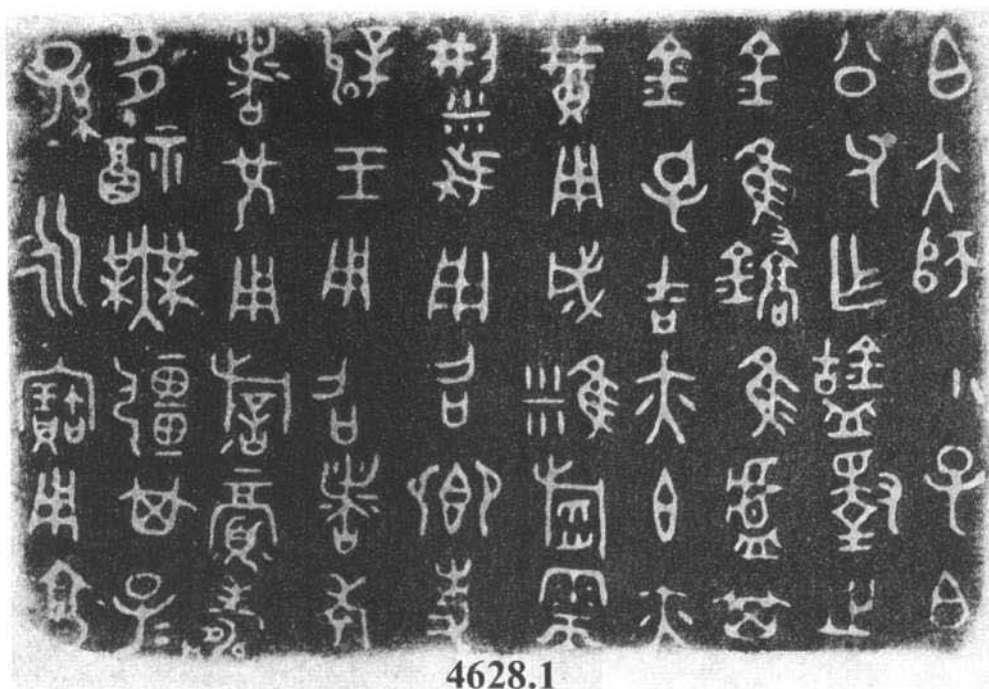 白大師小子白
公父乍𠤳擇之
金隹鐈隹盧其
金孔吉亦玄亦
黃用成𥻔稻需
梁我用召卿事
辟王用召者考
者兄用祈眉壽
多福無疆其子
孫永寶用享
4628.1